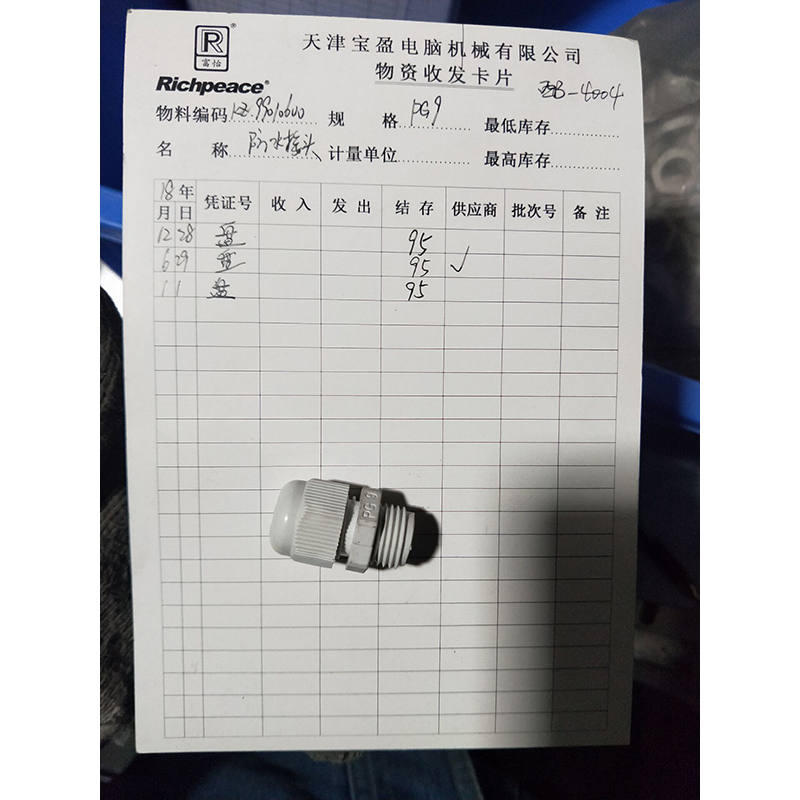 R®
富怡
Richpeace®
天津宝盈电脑机械有限公司
物资收发卡片
-4004
物料编码 规格 PG9 最低库存
名称 防水接头 计量单位 最高库存
18年 凭证号 收入 发出 结存 供应商 批次号 备注
月 日
12 28 盘 95
6 29 盘 95 ✓
1 1 盘 95
PG 9